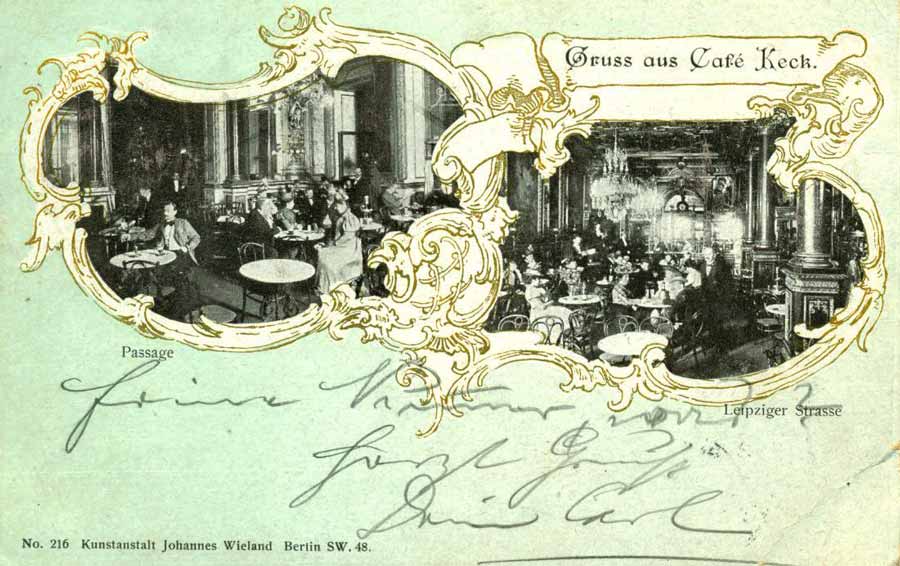 Gruss aus Café Keck.
Passage
Leipziger Strasse
Herzl Gruß
Dein Carl
No. 216 Kunstanstalt Johannes Wieland Berlin SW. 48.